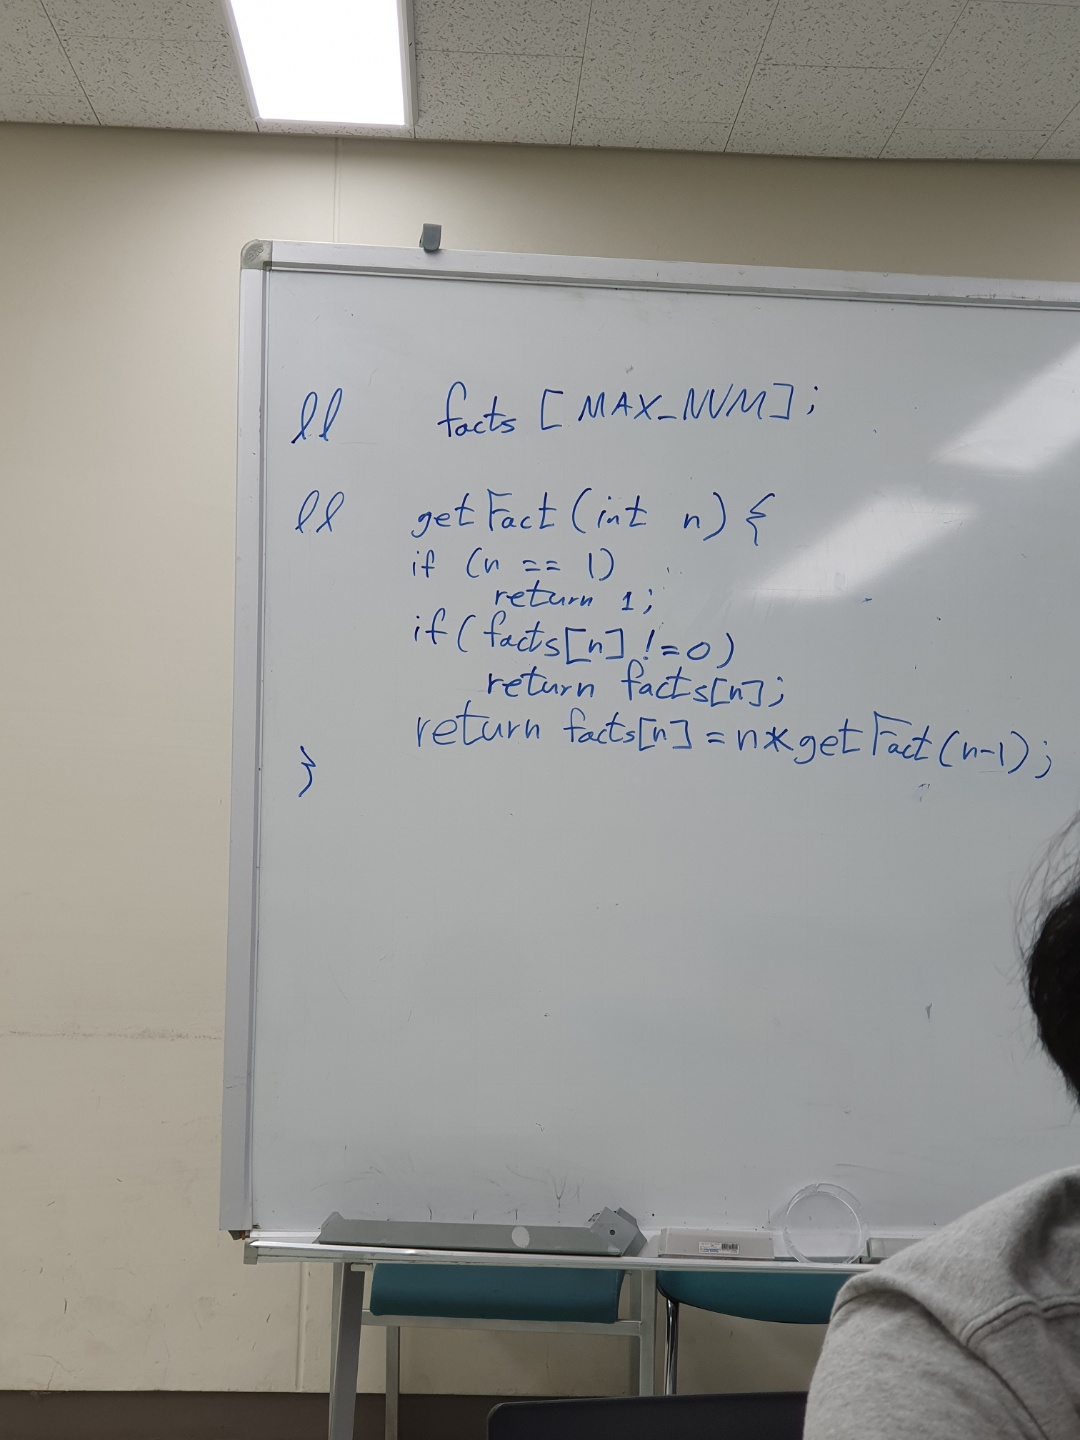 ll facts [MAX_NUM];
ll getFact (int n) {
if (n == 1)
return 1;
if (facts[n] !=0)
return facts[n];
return facts[n] = n*getFact(n-1);
}